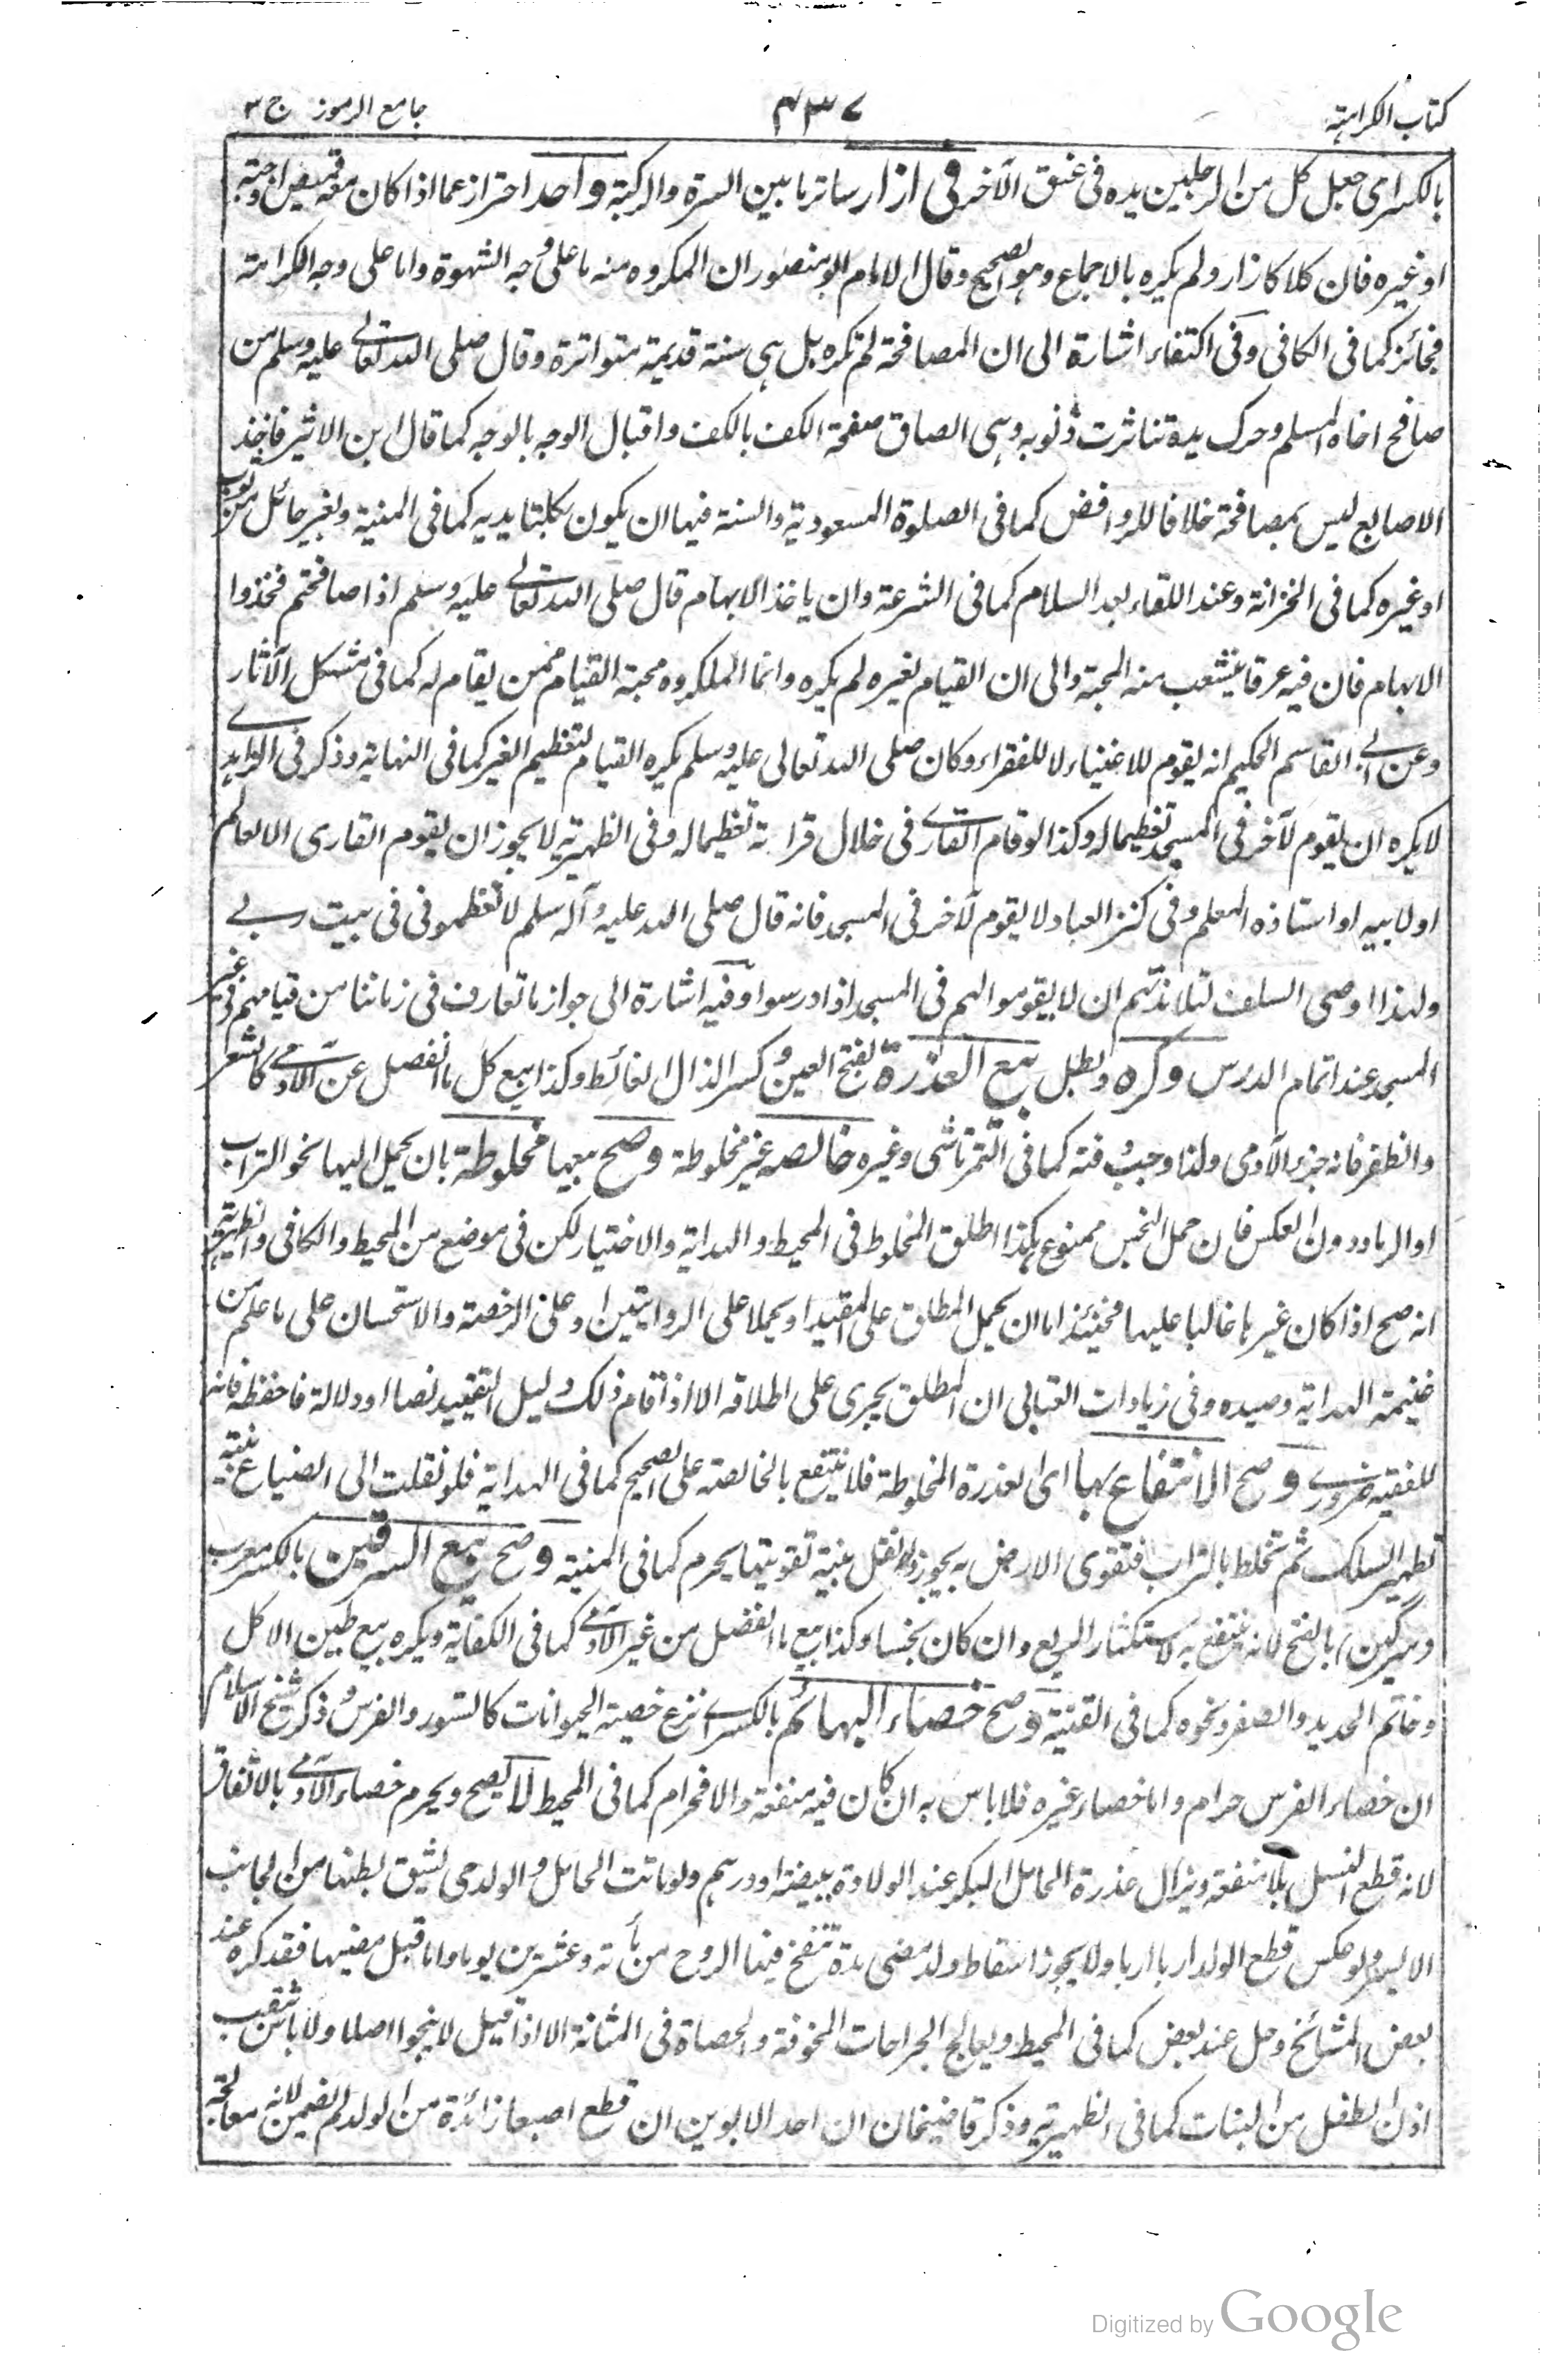 كتاب الكراهية
٤٣٧
جامع الرموز ج ٣
بالكسر اى جعل كل من الرجلين يده فى عنق الآخر فى ازار ساتر ما بين السرة والركبة واحد احتراز عما اذا كان معه قميص او جبة
او غيره فان كلا كازار ولم يكره بالاجماع وهو الصحيح وقال الامام ابو منصور ان المكروه منه ما على وجه الشهوة واما على وجه الكرامة
فجائز كما فى الكافى وفى اكتفاء اشارة الى ان المصافحة لم تكره بل هى سنة قديمة متواترة وقال صلى الله تعالى عليه وسلم من
صافح اخاه المسلم وحرك يده تناثرت ذنوبه وهى الصاق صفحة الكف بالكف واقبال الوجه بالوجه كما قال ابن الاثير فاخذ
الاصابع ليس بمصافحة خلافا للروافض كما فى الصلوة المسعودية والسنة فيها ان يكون بكلتا يديه كما فى المنية وبغير حائل من ثوب
او غيره كما فى الخزانة وعند اللقاء بعد السلام كما فى الشرعة وان ياخذ الابهام قال صلى الله تعالى عليه وسلم اذا صافحتم فخذوا
الابهام فان فيه عرقا يتشعب منه المحبة والى ان القيام لغيره لم يكره وانما المكروه محبة القيام ممن يقام له كما فى مشكل الآثار
وعن ابى القاسم الحكيم انه يقوم للاغنياء لا للفقراء وكان صلى الله تعالى عليه وسلم يكره القيام لتعظيم الغير كما فى النهاية وذكر فى الزاهدى
لا يكره ان يقوم لآخر فى المسجد تعظيما له وكذا لو قام القارى فى خلال قراءته تعظيما له وفى الظهيرية لا يجوز ان يقوم القارى الا لعالم
او لابيه او استاذه المعلم وفى كنز العباد لا يقوم لآخر فى المسجد فانه قال صلى الله عليه وآله سلم لا تعظمونى فى بيت ربى
ولهذا اوصى السلف لتلامذتهم ان لا يقوموا لهم فى المسجد اذا درسوا وفيه اشارة الى جواز ما تعارف فى زماننا من قيامهم فى غير
المسجد عند اتمام الدرس وكره وبطل بيع العذرة بفتح العين وكسر الذال الغائط وكذا بيع كل ما انفصل عن الآدمى كالشعر
والظفر فانه جزء الآدمى ولذا وجب دفنه كما فى التمرتاشى وغيره خالصه غير مخلوطة وصح بيعها مخلوطة بان يحمل اليها نحو التراب
او الرماد دون العكس فان حمل النجس ممنوع هكذا اطلق المخلوط فى المحيط والهداية والاختيار لكن فى موضع من المحيط والكافى والظهيرية
انه صح اذا كان غيرها غالبا عليها فحينئذ اما ان يحمل المطلق على المقيد او يحملا على الروايتين او على الرخصة والاستحسان على ما علم من
ضيمة الهداية وصيده وفى زيادات العتابى ان المطلق يجرى على اطلاقه الا اذا قام ذلك دليل التقييد نصا او دلالة فاحفظه فانه
للفقيه ضرورى وصح الانتفاع بها اى العذرة المخلوطة فلا ينتفع بالخالصة على الصحيح كما فى الهداية فلو نقلت الى الضياع بنية
تطهير السلك ثم تخلط بالتراب فتقوى الارض به يجوز والنقل بنية تقويتها يحرم كما فى المنية وصح بيع السرقين بالكسر معرب
(سركين) بالفتح لانه ينتفع به لاستكثار الريع وان كان نجسا وكذا بيع ما انفصل من غير الآدمى كما فى الكفاية ويكره بيع طين الاكل
وخاتم الحديد والصفر ونحوه كما فى القنية وصح خصاء البهائم بالكسر اى نزع خصية الحيوانات كالسنور والفرس وذكر شيخ الاسلام
ان خصاء الفرس حرام واما خصاء غيره فلا باس به ان كان فيه منفعة والا فحرام كما فى المحيط لا يصح ويحرم خصاء الآدمى بالاتفاق
لانه قطع النسل بلا منفعة ويزال عذرة الحامل البكر عند الولادة ببيضة او درهم ولو ماتت الحامل والولد حى يشق بطنها من الجانب
الايسر ولو عكس قطع الولد اربا اربا ولا يجوز اسقاط ولد مضى مدة تنفخ فيها الروح من مأته وعشرين يوما واما قبل مضيها فقد كره عند
بعض المشائخ وحل عند بعض كما فى المحيط ويعالج الجراحات المخوفة والحصاة فى المثانة الا اذا قيل لا ينجو اصلا ولا باس بثقب
اذن الطفل من البنات كما فى الظهيرية وذكر قاضيخان ان احد الابوين ان قطع اصبعا زائدة من الولد لم يضمن لانه معالجة
Digitized by Google